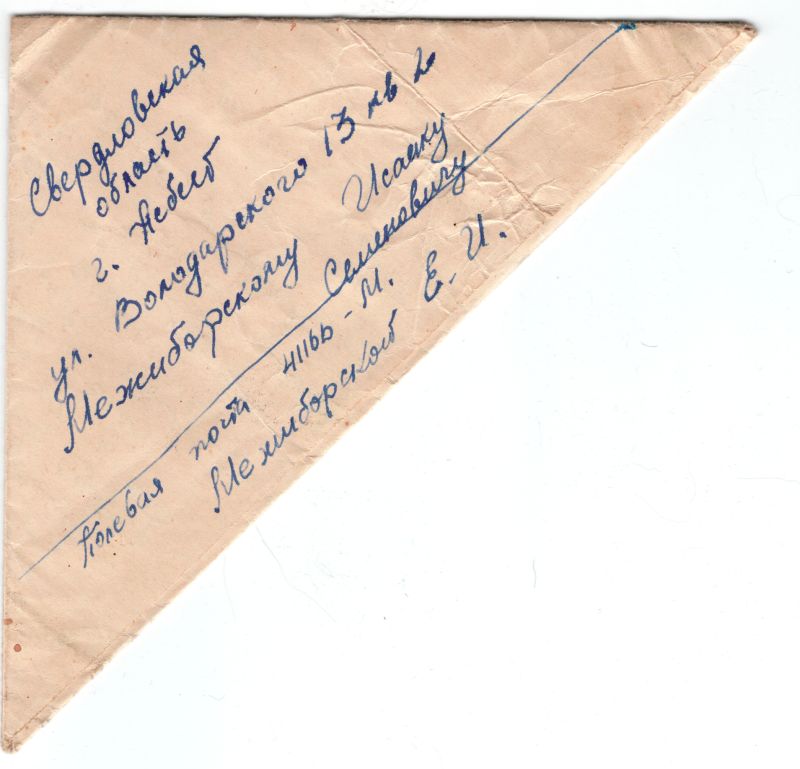 Свердловская
область
г. Асбест
ул. Володарского 13 кв 2
Межиборскому Исааку
Семеновичу
Полевая почта 41166 - М.
Межиборской Е. И.